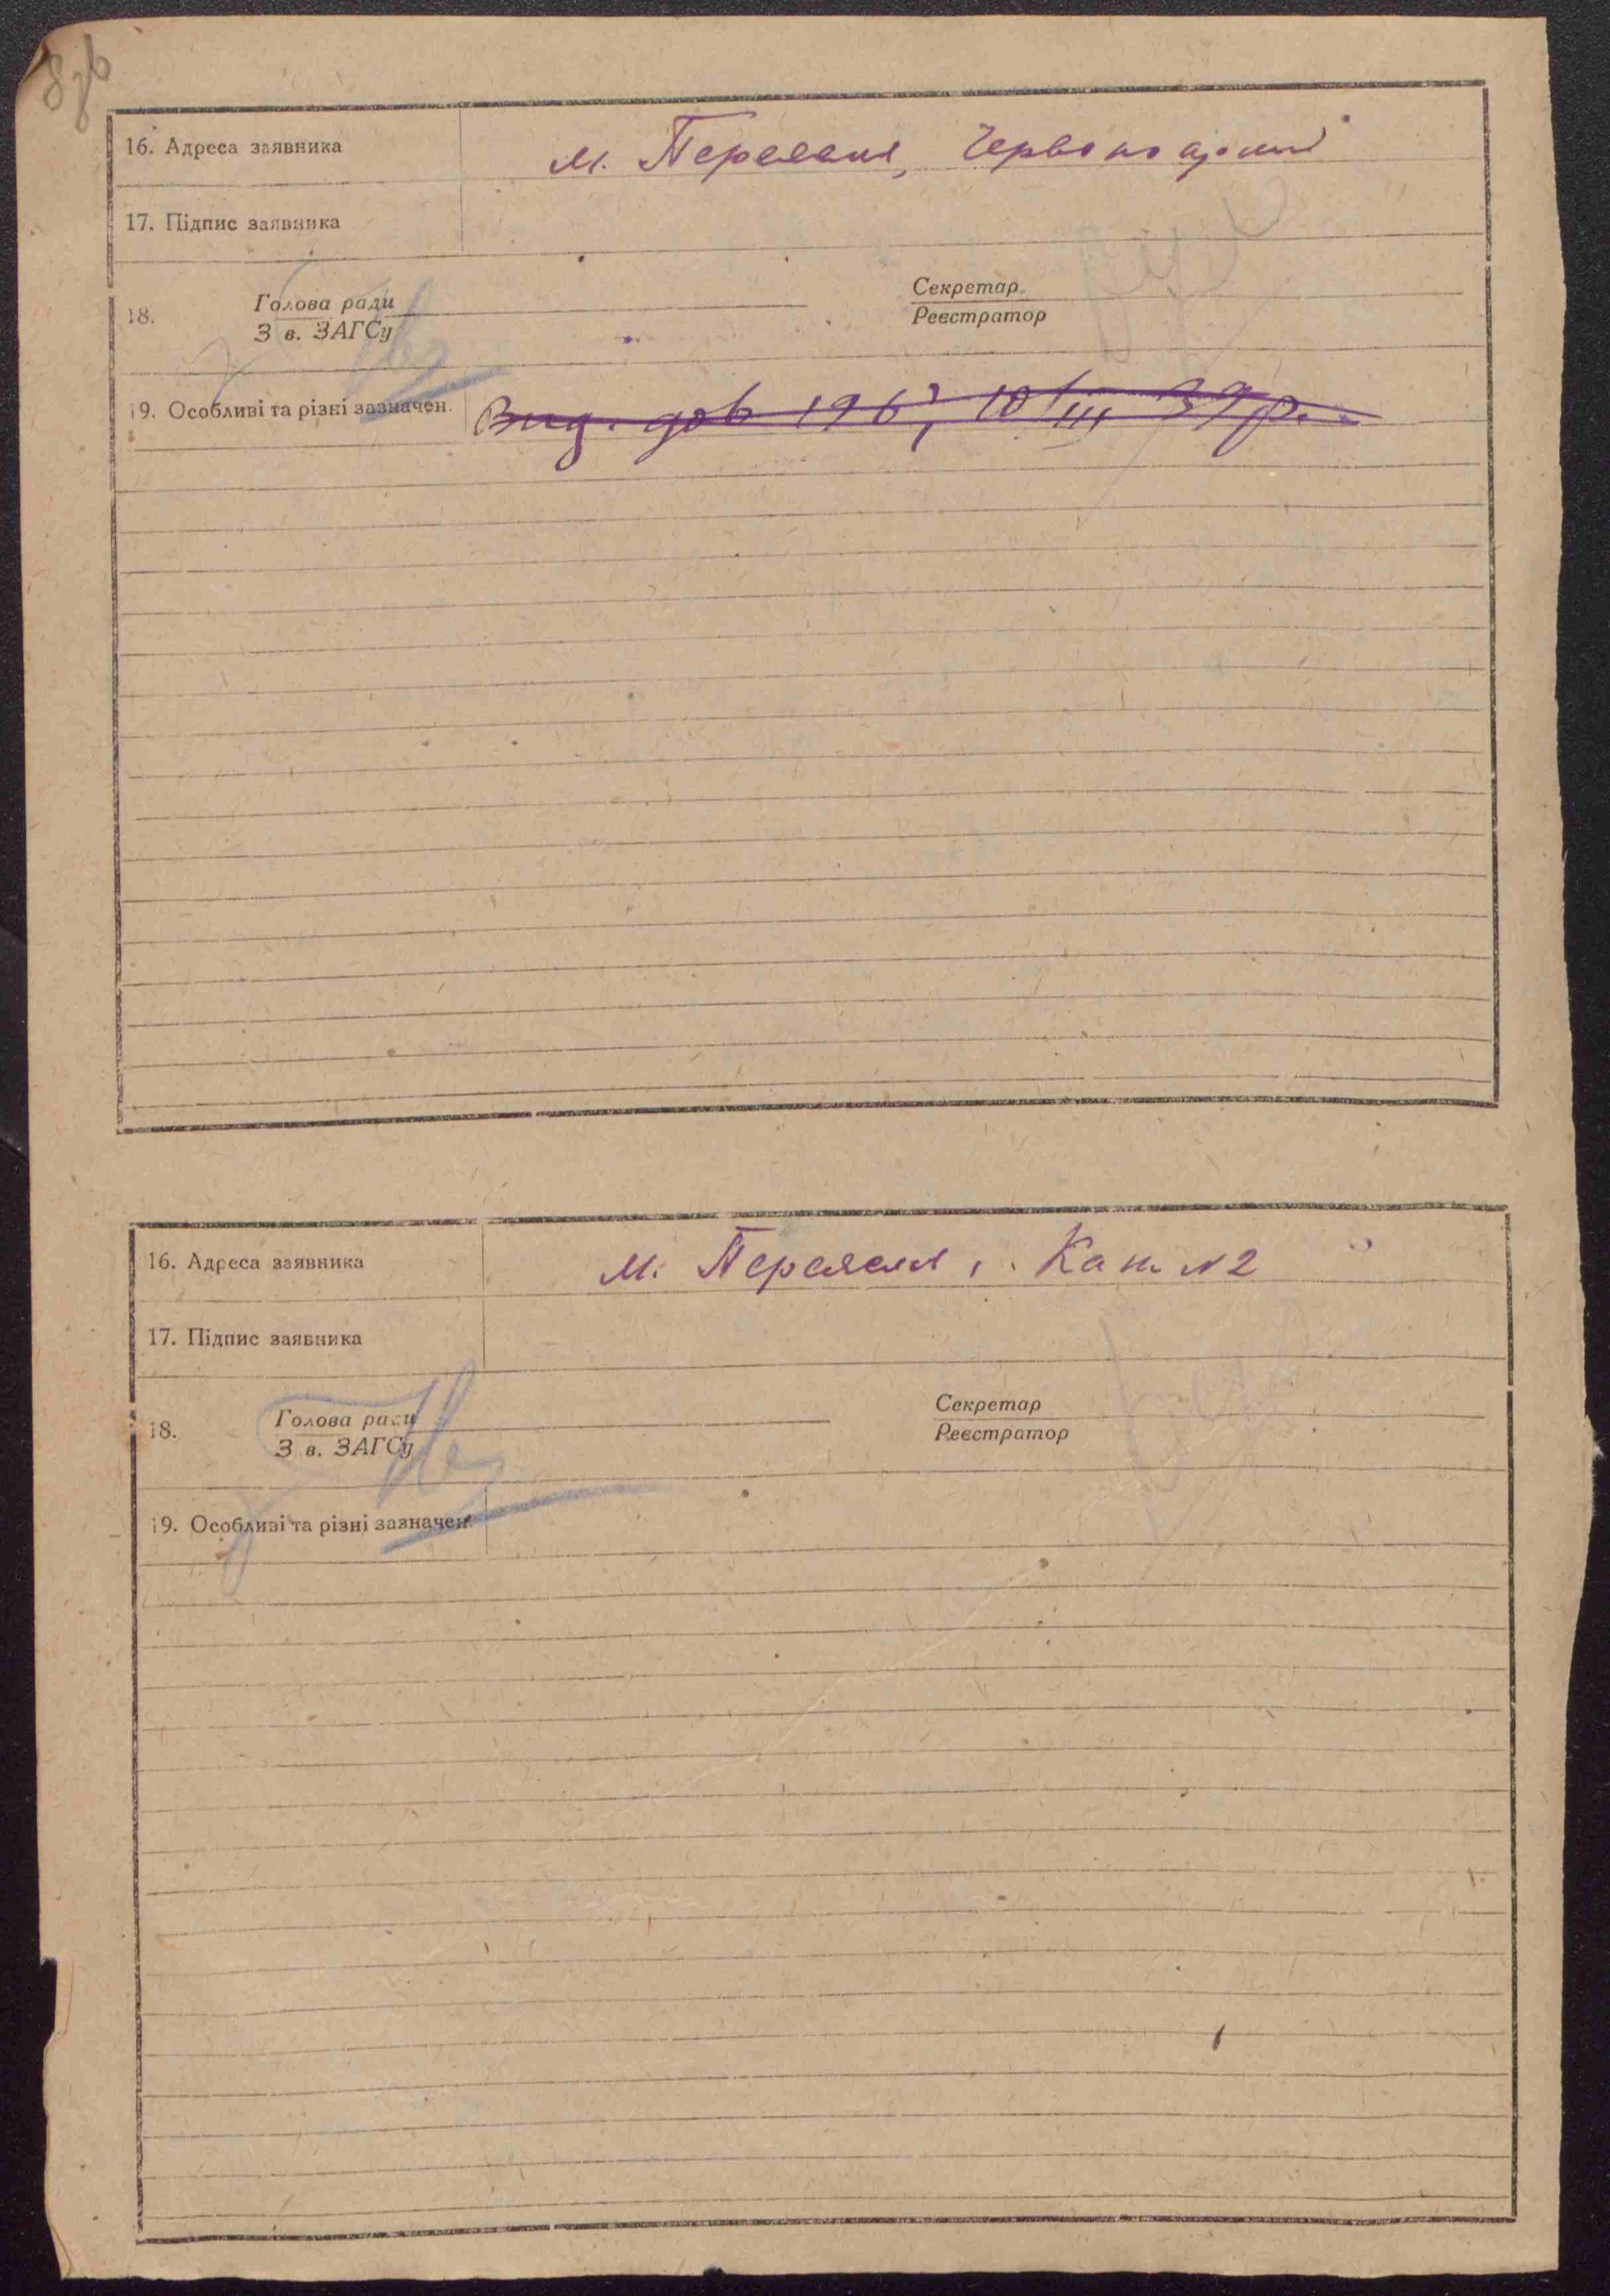 16. Адреса заявника м. Переяслів, Червоноармії
17. Підпис заявника
18. Голова ради Секретар
З в. ЗАГСу Реєстратор
19. Особливі та різні зазначен. Вид. дов 196, 10/III 39 р.
16. Адреса заявника м. Переяслів, Кат. №2
17. Підпис заявника
18. Голова ради Секретар
З в. ЗАГСу Реєстратор
19. Особливі та різні зазначен.